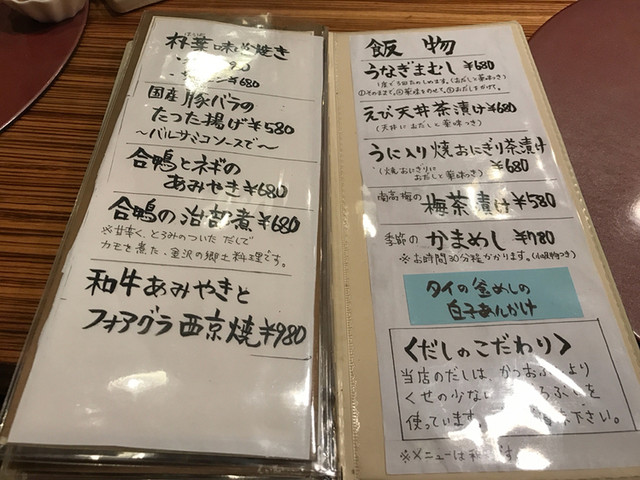 味噌焼き
¥680
国産 豚バラの
たった揚げ¥580
〜バルサミコソースで〜
合鴨とネギの
あみやき¥680
合鴨の治部煮¥680
※甘辛く、とろみのついた だしで
カモを煮た、金沢の郷土料理です。
和牛あみやきと
フォアグラ西京焼¥980
飯物
うなぎまむし ¥680
(1度で3回たのしめます。(おだしと薬味つき)
①そのままで。②薬味をのせて。③おだしをかけて。
えび天丼茶漬け¥680
(天丼に おだしと薬味つき)
うに入り焼おにぎり茶漬け
¥680
(焼おにぎりに
おだしと薬味つき)
南高梅の 梅茶漬け¥580
季節の かまめし ¥780
※お時間30分程かかります。
タイの釜めしの
白子あんかけ
〈だしのこだわり〉
当店のだしは、かつおぶしより
くせの少ない
使っています。 下さい。
※メニューは